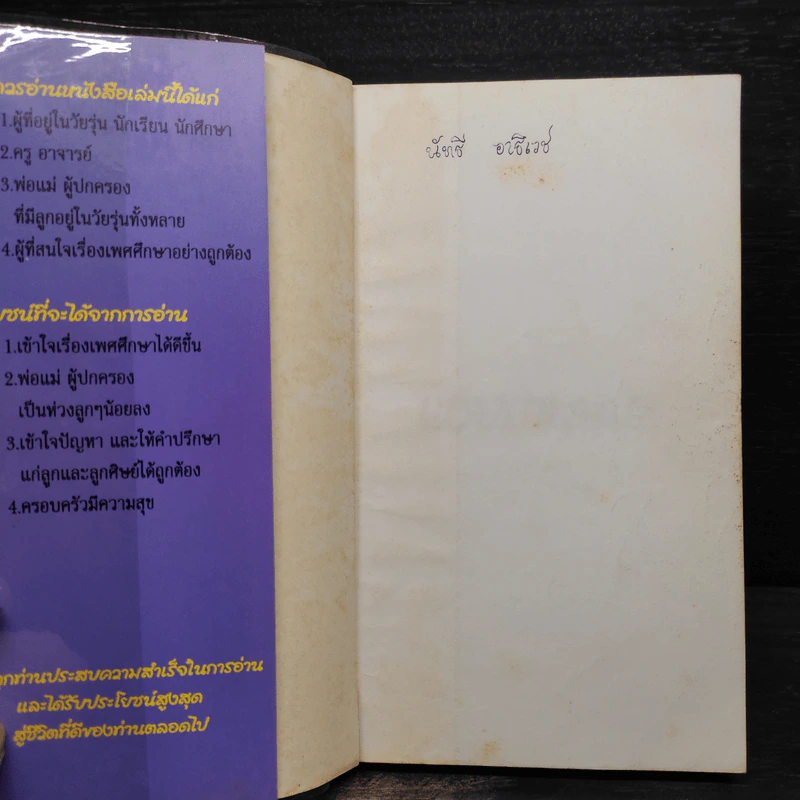 ควรอ่านหนังสือเล่มนี้ได้แก่
1.ผู้ที่อยู่ในวัยรุ่น นักเรียน นักศึกษา
2.ครู อาจารย์
3.พ่อแม่ ผู้ปกครอง
ที่มีลูกอยู่ในวัยรุ่นทั้งหลาย
4.ผู้ที่สนใจเรื่องเพศศึกษาอย่างถูกต้อง
ยชน์ที่จะได้จากการอ่าน
1.เข้าใจเรื่องเพศศึกษาได้ดีขึ้น
2.พ่อแม่ ผู้ปกครอง
เป็นห่วงลูกๆน้อยลง
3.เข้าใจปัญหา และให้คำปรึกษา
แก่ลูกและลูกศิษย์ได้ถูกต้อง
4.ครอบครัวมีความสุข
ทุกท่านประสบความสำเร็จในการอ่าน
และได้รับประโยชน์สูงสุด
สู่ชีวิตที่ดีของท่านตลอดไป